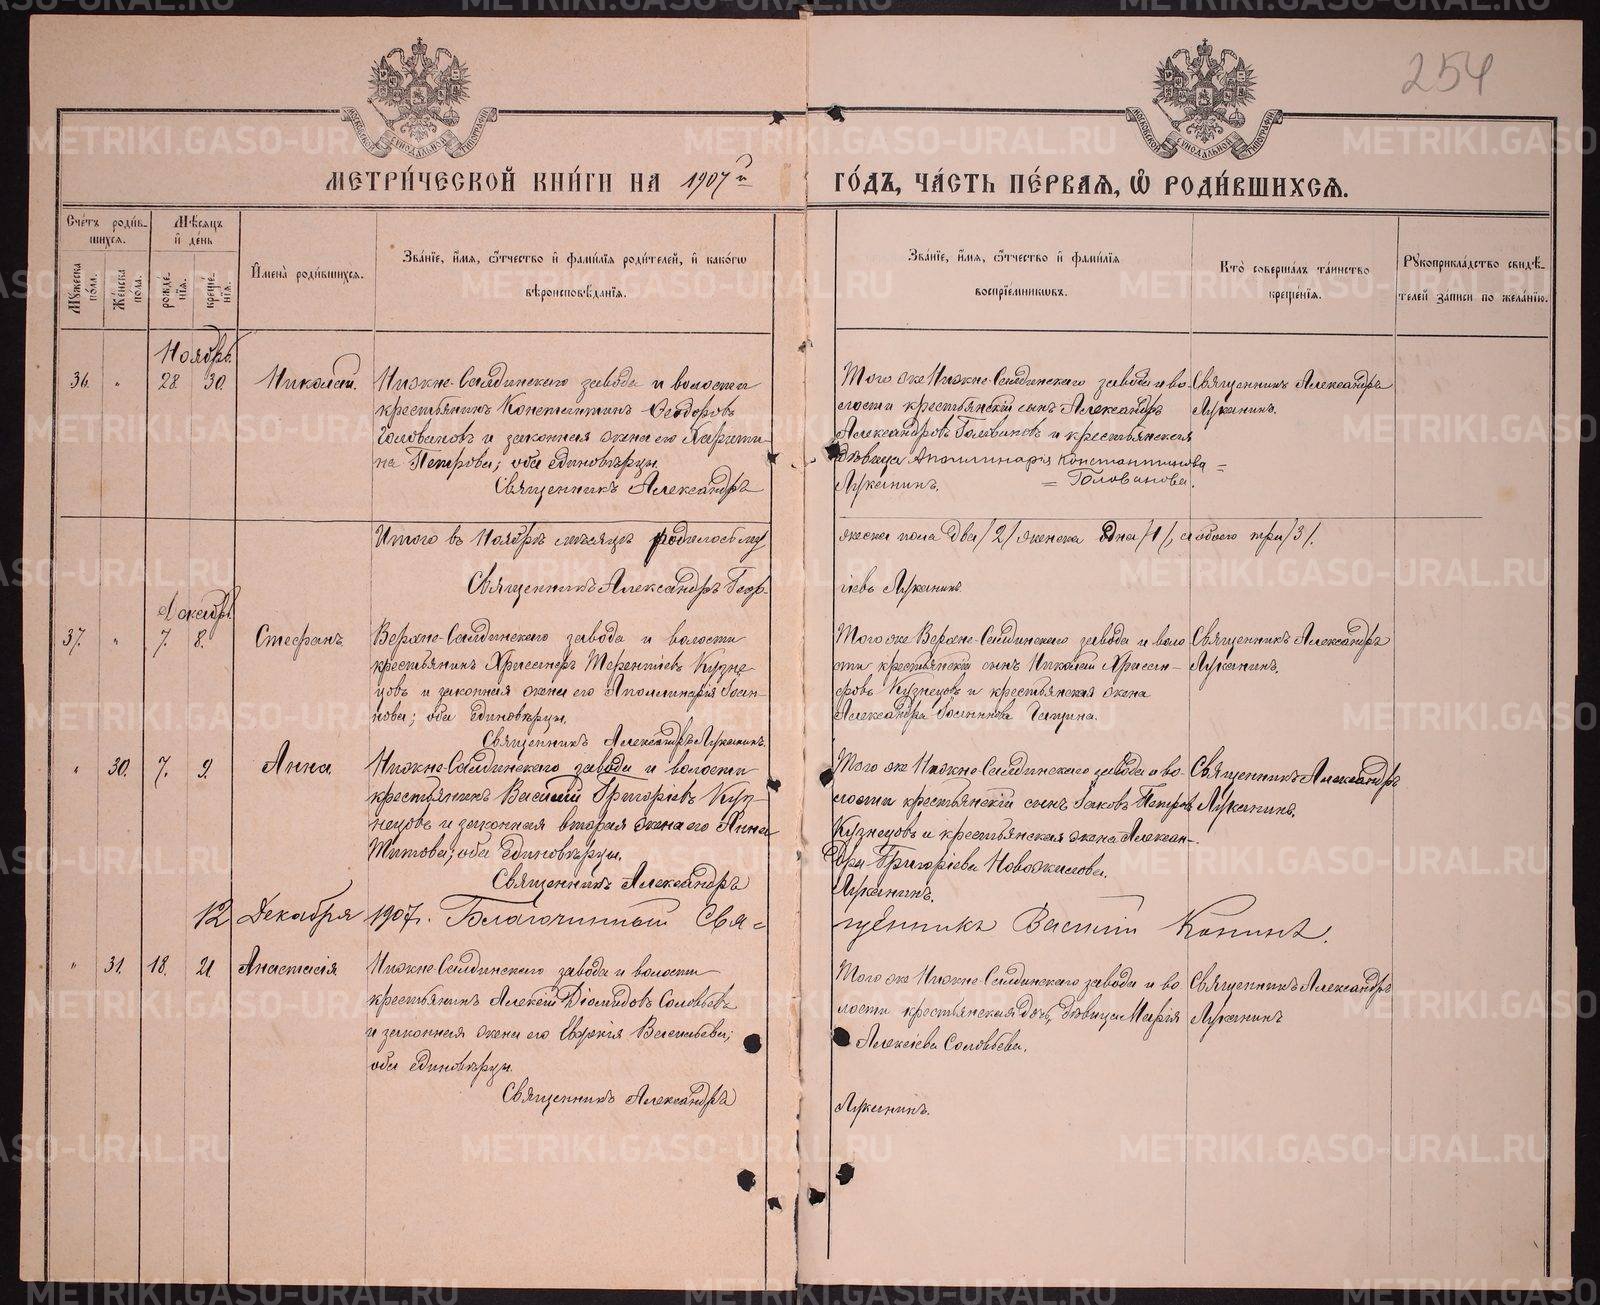 254
МЕТРИ́ЧЕСКОЙ КНИ́ГИ НА 1907й ГО́ДЪ, ЧА́СТЬ ПЕ́РВАЯ, Ѡ РОДИ́ВШИХСЯ.
Сче́тъ роди́в-
шихся.
Му́жеска по́ла.
Же́нска по́ла.
Мѣ́сяцъ
и҆ де́нь
рожде́нїя.
креще́нїя.
И҆мена̀ роди́вшихся.
Зва́нїе, и҆́мя, ѻ҆́тчество и҆ фами́лїя роди́телей, и҆ како́гѡ
вѣроисповѣ́данїя.
Зва́нїе, и҆́мя, ѻ҆́тчество и҆ фами́лїя
воспрїе́мникѡвъ.
Кто̀ соверша́лъ та́инство
креще́нїя.
Рꙋкоприкла́дство свидѣ́-
телей за́писи по жела́нїю.
Ноябрь.
36. " 28. 30. Николай.
Нижне-Салдинскаго завода и волости
крестьянинъ Константинъ Ѳеодоровъ
Головановъ и законная жена его Харити-
на Петрова; оба единовѣрцы.
Священникъ Александръ
Того же Нижне-Салдинскаго завода и во-
лости крестьянскій сынъ Александръ
Александровъ Головановъ и крестьянская
дѣвица Аполлинарія Константинова =
= Голованова.
Лукининъ.
Священникъ Александръ
Лукининъ.
Итого въ Ноябрѣ мѣсяцѣ родилось му
жеска пола два /2/ женска одна /1/, а обоего три /3/.
Священникъ Александръ Геор-
гіевъ Лукининъ.
Декабрь
37. " 7. 8. Стефанъ.
Верхне-Салдинскаго завода и волости
крестьянинъ Хрисанфъ Терентіевъ Кузне-
цовъ и законная жена его Аполлинарія Іоан-
нова; оба единовѣрцы.
Священникъ Александръ Лукининъ.
Того же Верхне-Салдинскаго завода и воло
сти крестьянскій сынъ Николай Хрисан-
фовъ Кузнецовъ и крестьянская жена
Александра Іоаннова
Священникъ Александръ
Лукининъ.
" 30. 7. 9. Анна.
Нижне-Салдинскаго завода и волости
крестьянинъ Василій Григоріевъ Куз-
нецовъ и законная вторая жена его Анна
Титова; оба единовѣрцы.
Священникъ Александръ
Того же Нижне-Салдинскаго завода и во-
лости крестьянскій сынъ Іаковъ Петровъ
Кузнецовъ и крестьянская жена Алексан-
дра Григоріева Новожилова.
Лукининъ.
Священникъ Александръ
Лукининъ.
12 Декабря 1907 г. Благочинный Свя=
щенникъ Василій Конинъ.
" 31. 18. 21 Анастасія
Нижне-Салдинскаго завода и волости
крестьянинъ Алексій Діомидовъ Соловьевъ
и законная жена его Васильева;
оба единовѣрцы.
Священникъ Александръ
Того же Нижне-Салдинскаго завода и во
лости крестьянская дочь, дѣвица Марія
Алексіева Соловьева.
Лукининъ.
Священникъ Александръ
Лукининъ
METRIKI.GASO-URAL.RU